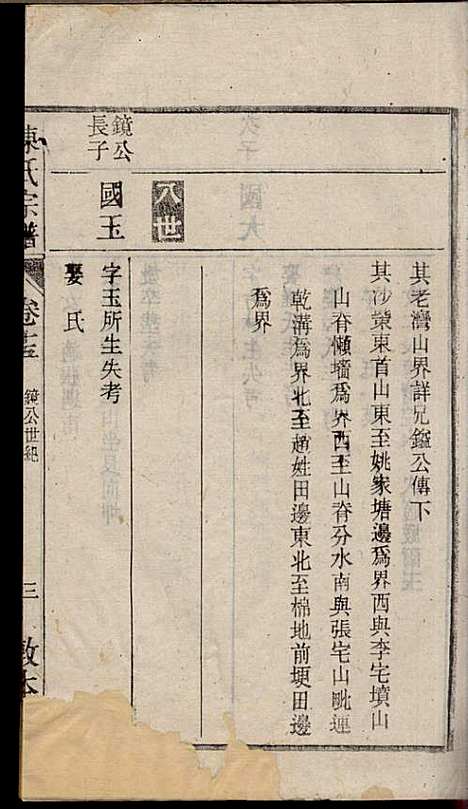 其老灣山界詳兄鎰公傳下
其沙蒙東首山東至姚家塘邊爲界西與李宅墳山
山脊懶墻爲界西至山脊分水南與張宅山毗連
乾溝爲界北至趙姓田邊東北至棉地前埂田邊
爲界
八世
鏡公
長子
國玉
字玉所生失考
娶氏
陳氏宗譜
卷十三
鏡公世紀
三
敦本